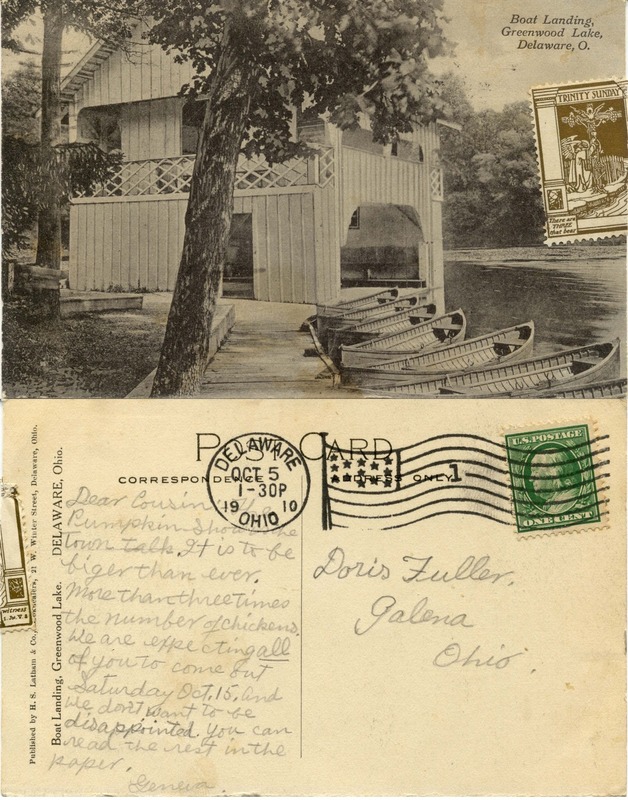 Boat Landing,
Greenwood Lake,
Delaware, O.
TRINITY SUNDAY
There are
THREE
that bear
POST CARD
CORRESPONDENCE
ADDRESS ONLY
DELAWARE
OCT 5
1-30P
19 10
OHIO
1
U.S. POSTAGE
ONE CENT
Dear Cousin: The
Pumpkin Show is the
town talk. It is to be
biger than ever.
More than three times
the number of chickens.
We are expecting all
of you to come out
Saturday Oct. 15. and
we don't want to be
disappointed. You can
read the rest in the
paper.
Geneva.
Doris Fuller.
Galena
Ohio.
Published by H. S. Latham & Co., 21 W. Winter Street, Delaware, Ohio.
Boat Landing, Greenwood Lake. DELAWARE, Ohio.
WITNESS